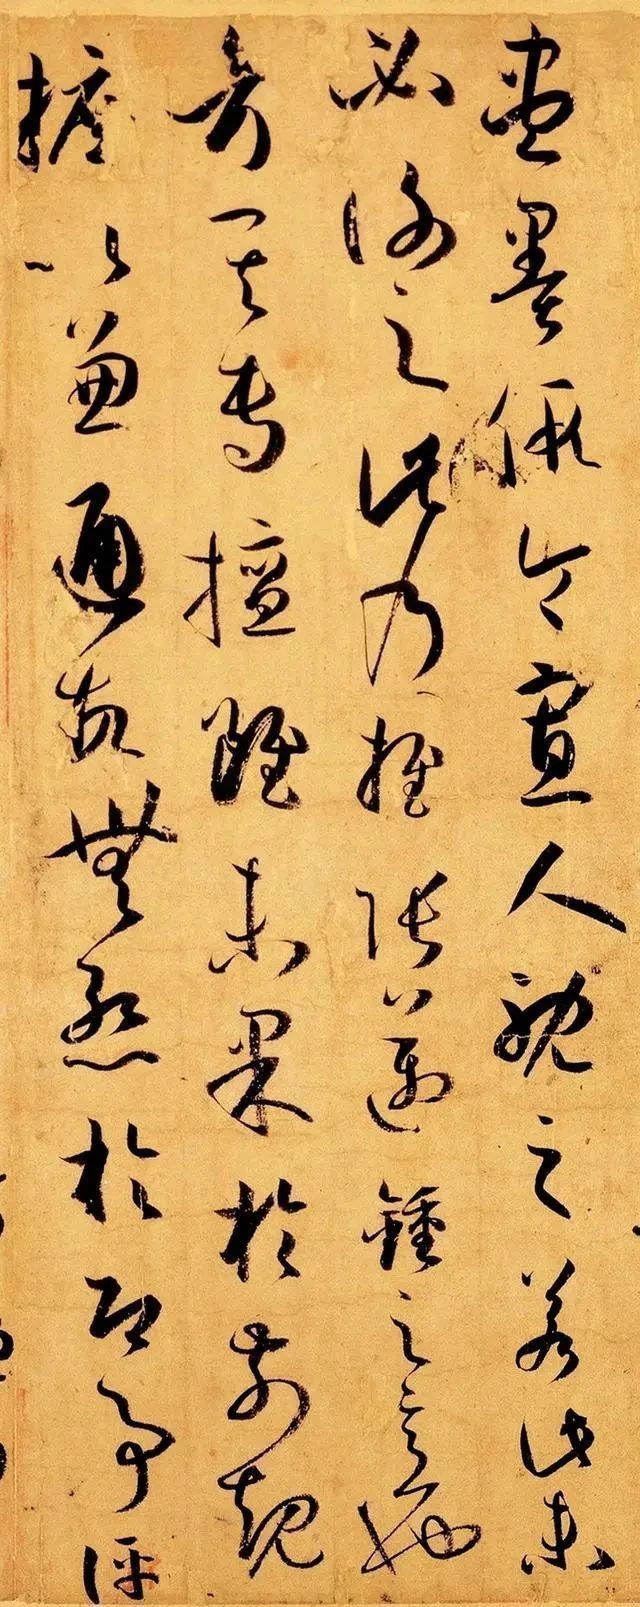 盡墨假令寡人耽之若此未
必謝之此乃推張邁鍾之意也
考其專擅雖未果於前規
摭以兼通故無慙於即事評